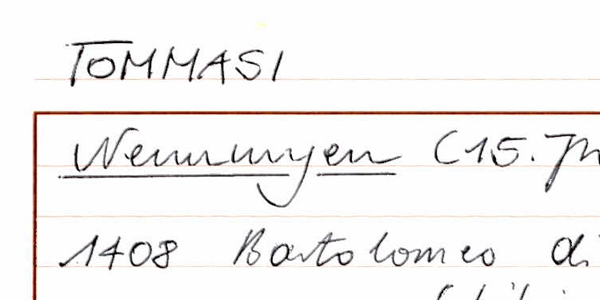 TOMMASI
Nennungen (15. Jh
1408 Bartolomeo di